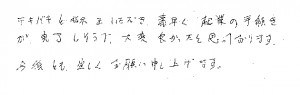 テキパキと指示を いただき 素早く 起業の手続き
が 完了しそうで、大変 良かったと思っております。
今後とも、宜しく お願い申し上げます。